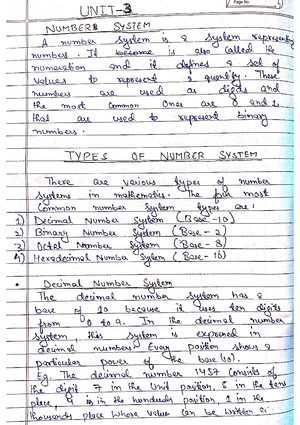 Page No.
UNIT-3
NUMBER SYSTEM
A number system is a system representing
numbers. It become is also called the
numeration and it defines a set of
values to represent a quantity. These
numbers are used as digits and
the most common ones are 0 and 1,
that are used to represent binary
numbers.
TYPES OF NUMBER SYSTEM
There are various types of number
systems in mathematics. The four most
common number system types are:
1) Decimal Number System (Base-10)
2) Binary Number System (Base-2)
3) Octal Number System (Base-8)
4) Hexadecimal Number System (Base-16)
• Decimal Number System
The decimal number system has a
base of 10 because it uses ten digits
from 0 to 9. In the decimal number
system this system is expressed in
decimal numbers every position shows a
particular power of the base (10).
Eg. The decimal number 1457 consists of
the digit 7 in the unit position, 5 in the tens
place 4 is in the hundreds position, 1 in the
thousands place whose value can be written as: